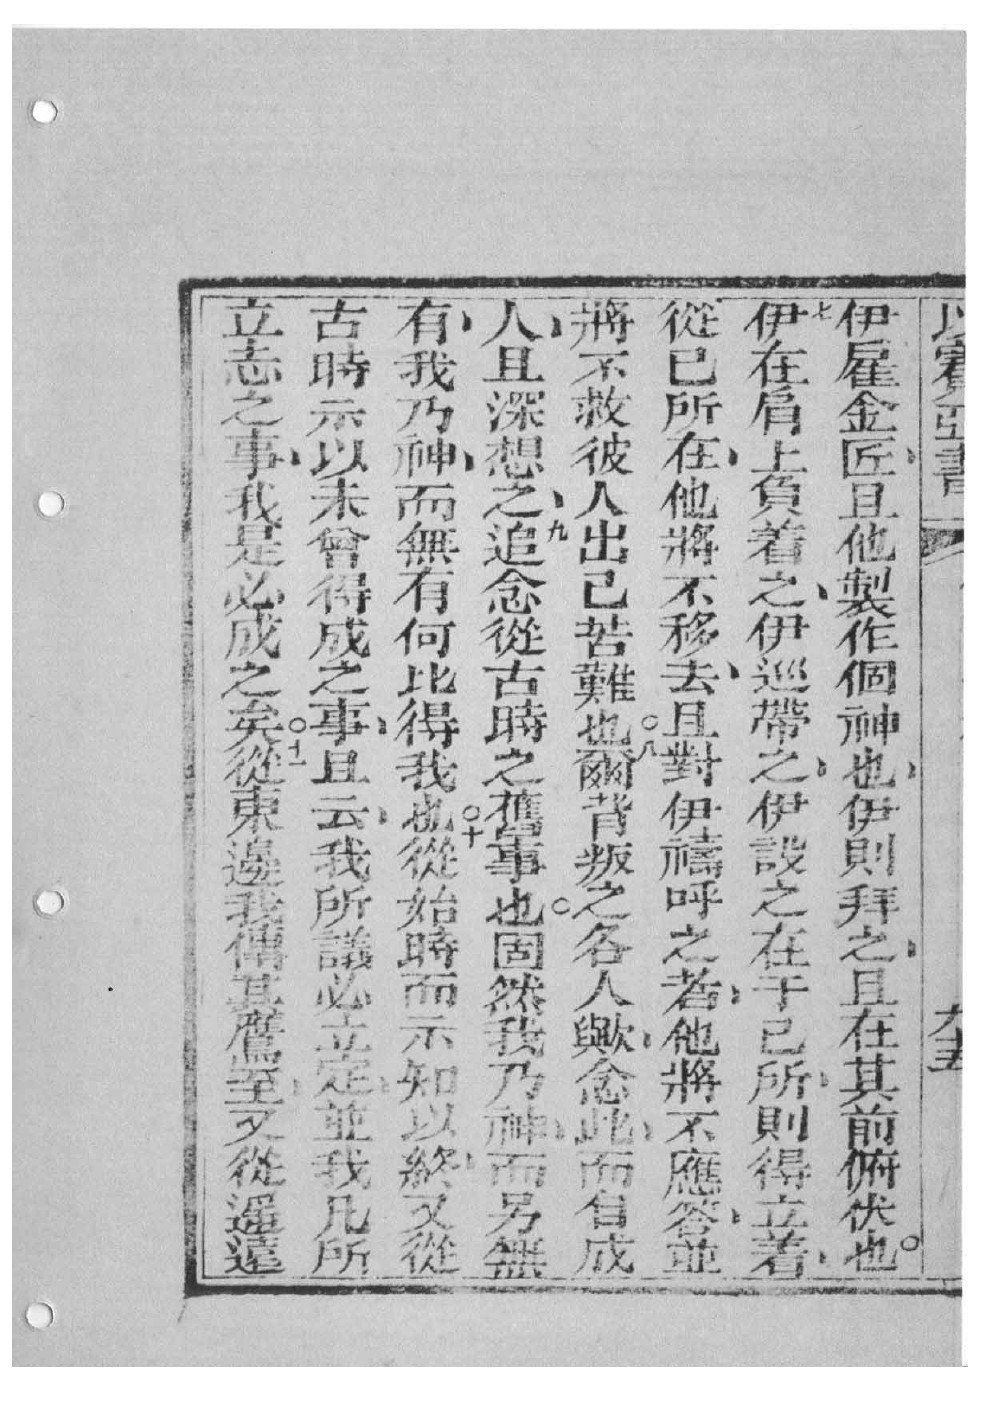 以賽亞書 九五
伊雇金匠、且他製作個神也、伊則拜之、且在其前俯伏也○
七伊在肩上負着之、伊巡帶之、伊設之在于己所、則得立着、
從己所在、他將不移去、且對伊禱呼之者、他將不應答、並
將不救彼人出己苦難也○八爾背叛之各人歟、念此、而自成
人、且深想之、九追念從古時之舊事也○固然我乃神、而另無
有、我乃神、而無有何比得我也○十從始時而示知以終、又從
古時示以未曾得成之事、且云、我所議必立定、並我凡所
立志之事、我是必成之矣○十一從東邊我傳其鷹至、又從遥遠